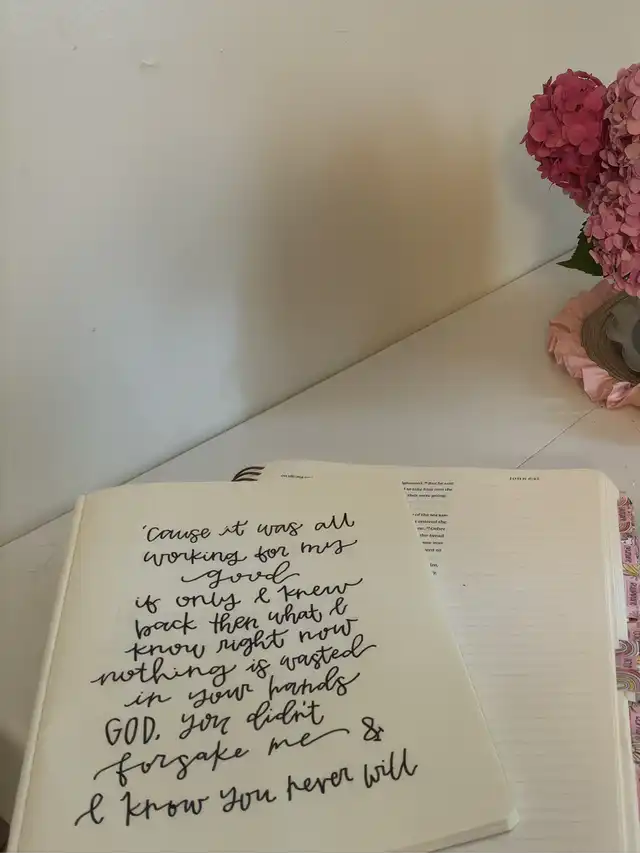 'cause it was all
working for my
good
if only I knew
back then what I
know right now
nothing is wasted
in your hands
GOD, you didn't
forsake me &
I know you never will